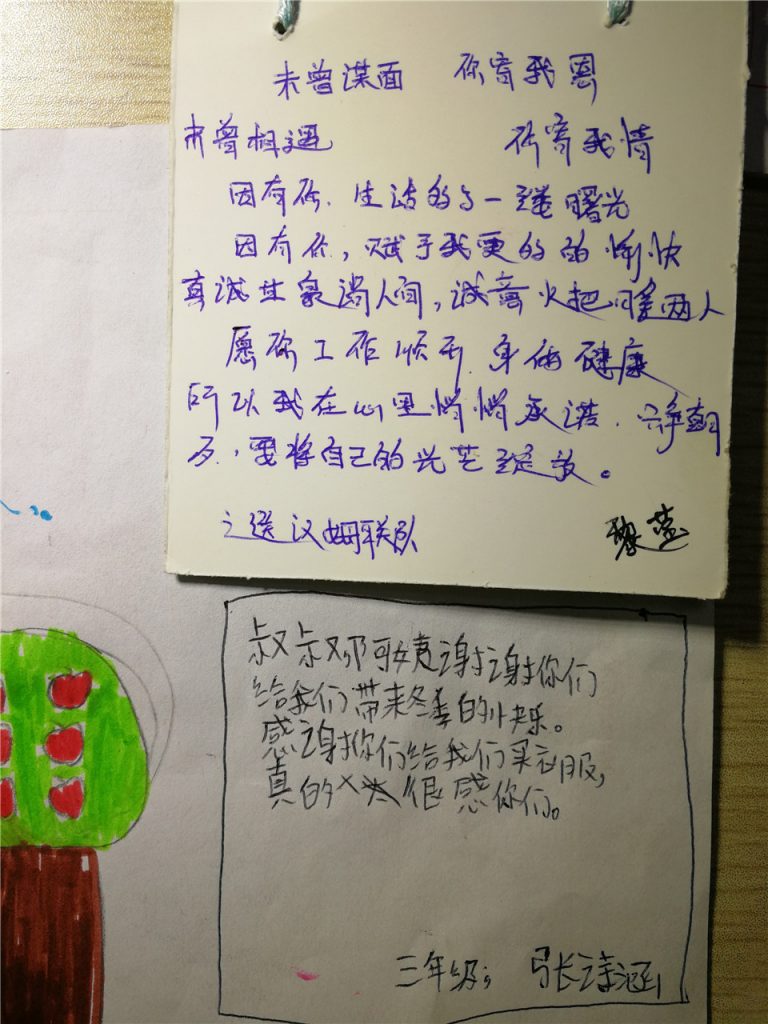 未曾谋面 你寄我恩
未曾相遇 你寄我情
因有你，生活的与一缕曙光
因有你，赋予我更的的愉快
真诚甘泉润人间，诚意火把暖两人
愿你工作顺利，身体健康
所以我在心里悄悄承诺，
要将自己的光芒绽放。
联队
叔叔阿姨谢谢你们
给我们带来冬季的快乐。
感谢你们给我们买衣服，
真的很感你们。
三年级： 张诗涵